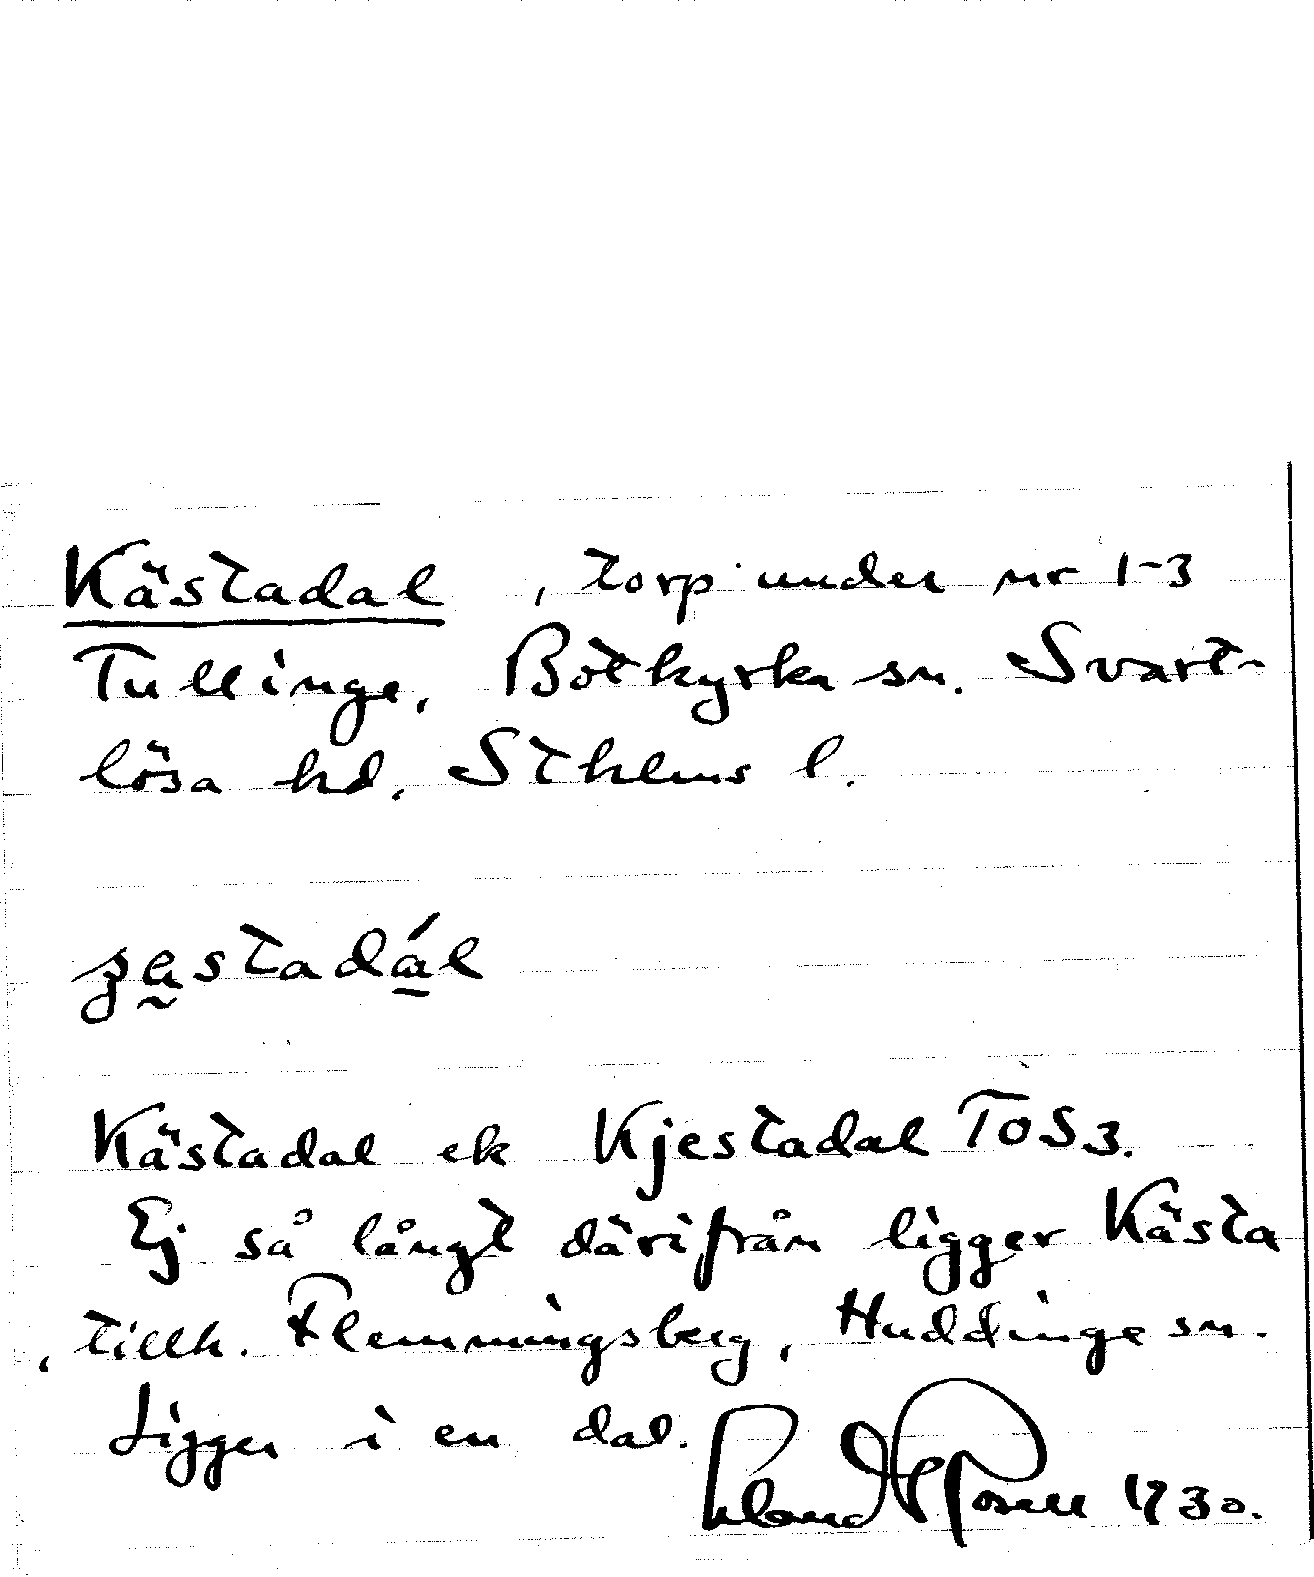 Kästadal, torp under nr 1-3
Tullinge, Botkyrka sn. Svart-
lösa hd. Sthlms l.
Kästadal ek Kjestadal TOS3.
Ej så långt därifrån ligger Kästa
, tillh. Flemmingsberg, Huddinge sn.
Ligger i en dal.
1930.